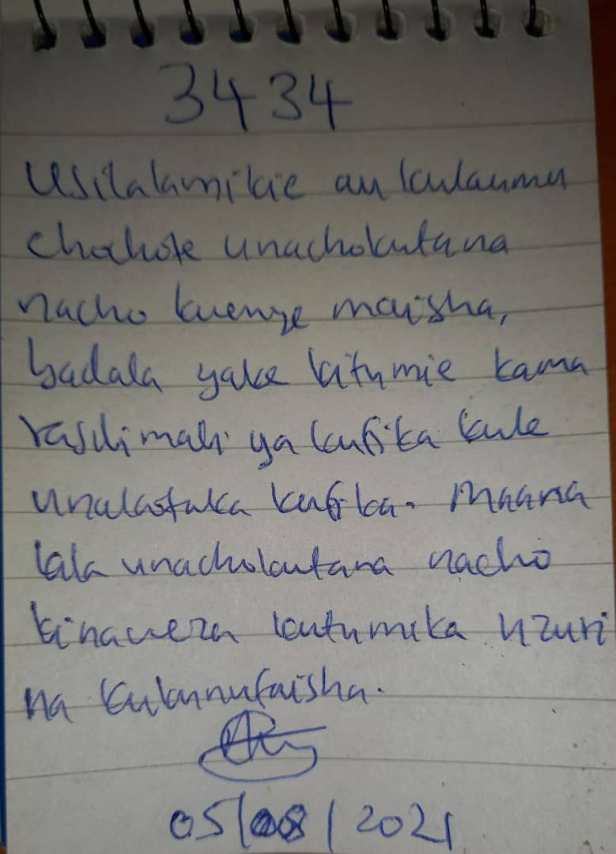 3434
Usilalamikie au kulaumu
chochote unachokutana
nacho kwenye maisha,
badala yake kitumie kama
rasilimali ya kufika kule
unakotaka kufika. Maana
kila unachokutana nacho
kinaweza kutumika vizuri
na kukunufaisha.
05/08/2021